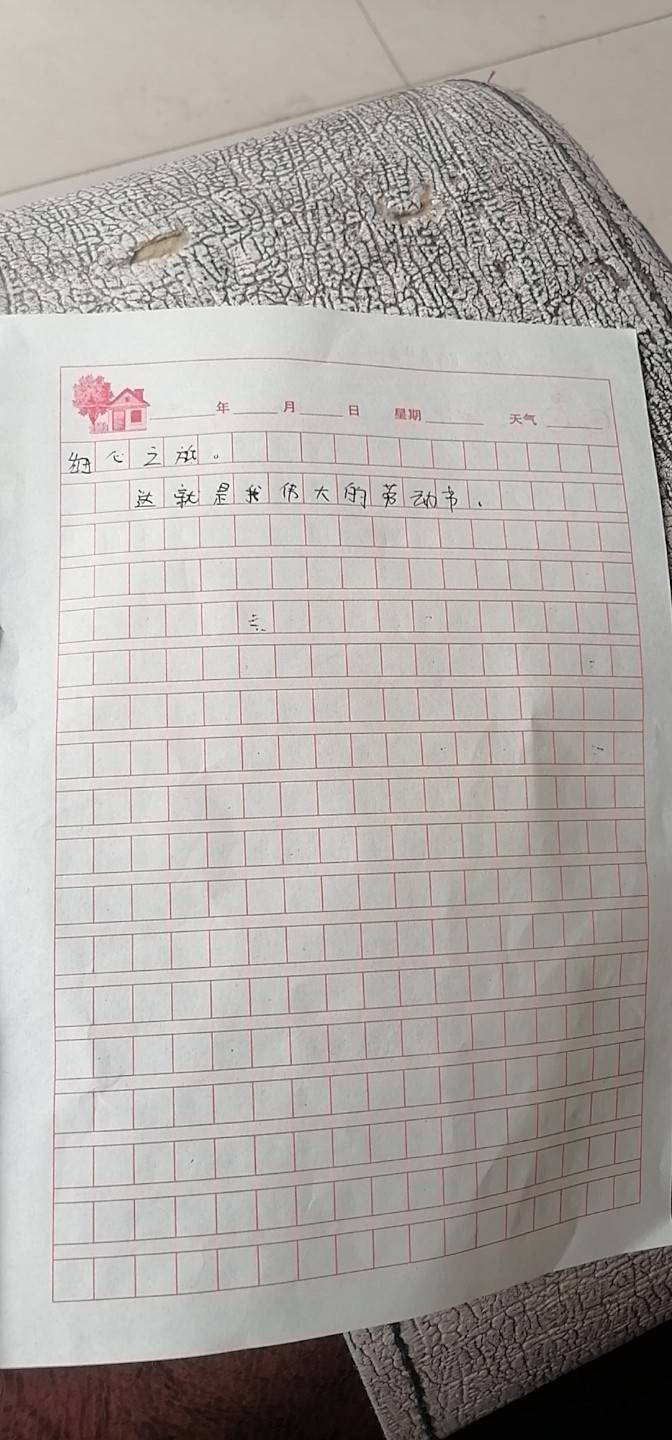 年 月 日 星期 天气
细心之旅。
这就是我伟大的劳动节.